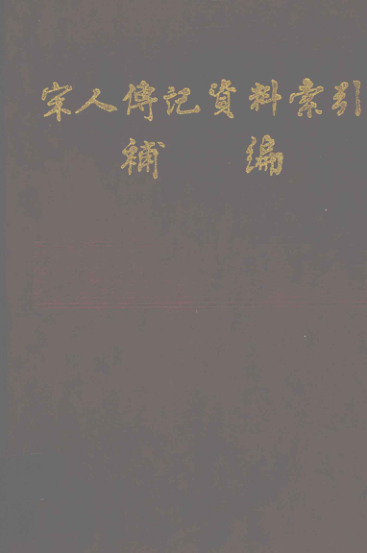 宋人傳記資料索引
補編